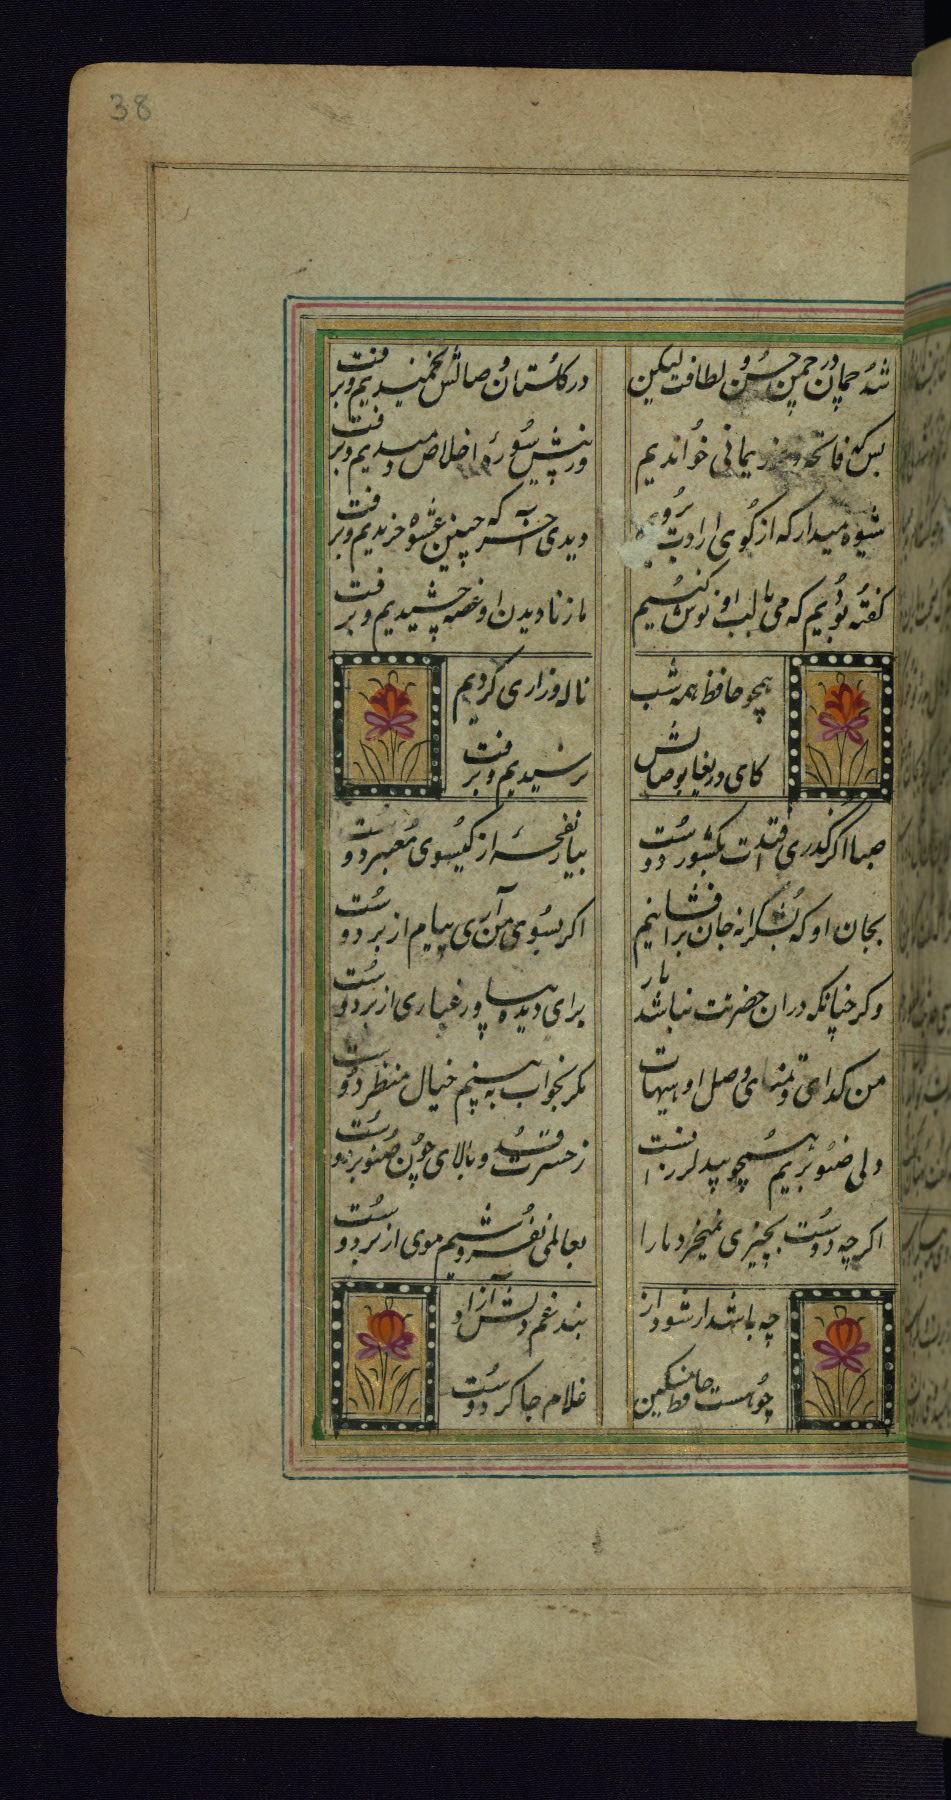 38
شد چمان در چمن حسن و لطافت لیکن در گلستان وصالش نچمیدیم و برفت
بس که فاتحه و یمانی خواندیم وز پیش سوره اخلاص دمیدیم و برفت
شیوه میدار که از کوی ارادت نروی دیدی آخر که چنین عشوه خریدیم و برفت
گفته بودیم که می با لب او نوش کنیم ما ز نادیدن او غصه چشیدیم و برفت
همچو حافظ همه شب ناله و زاری کردیم
کای دریغا بوصالش نرسیدیم و برفت
صبا اگر گذری افتدت بکشور دوست بیار نفحهٔ از گیسوی معنبر دوست
بجان او که بشکرانه جان برافشانیم اگر بسوی من آری پیام از بر دوست
وگر چنانکه در ان حضرتت نباشد بار برای دیده بیاور غباری از بر دوست
من گدای و تمنای وصل او هیهات مگر بخواب به بینم خیال منظر دوست
دلی صنوبریم همچو بید لرزانست ز حسرت قد و بالای چون صنوبر دوست
اگرچه دوست بچیزی نمیخرد ما را بعالمی نفروشیم موی از بر دوست
چه باشد ار شود از بند غم دلش آزاد
چو هست حافظ مسکین غلام چاکر دوست